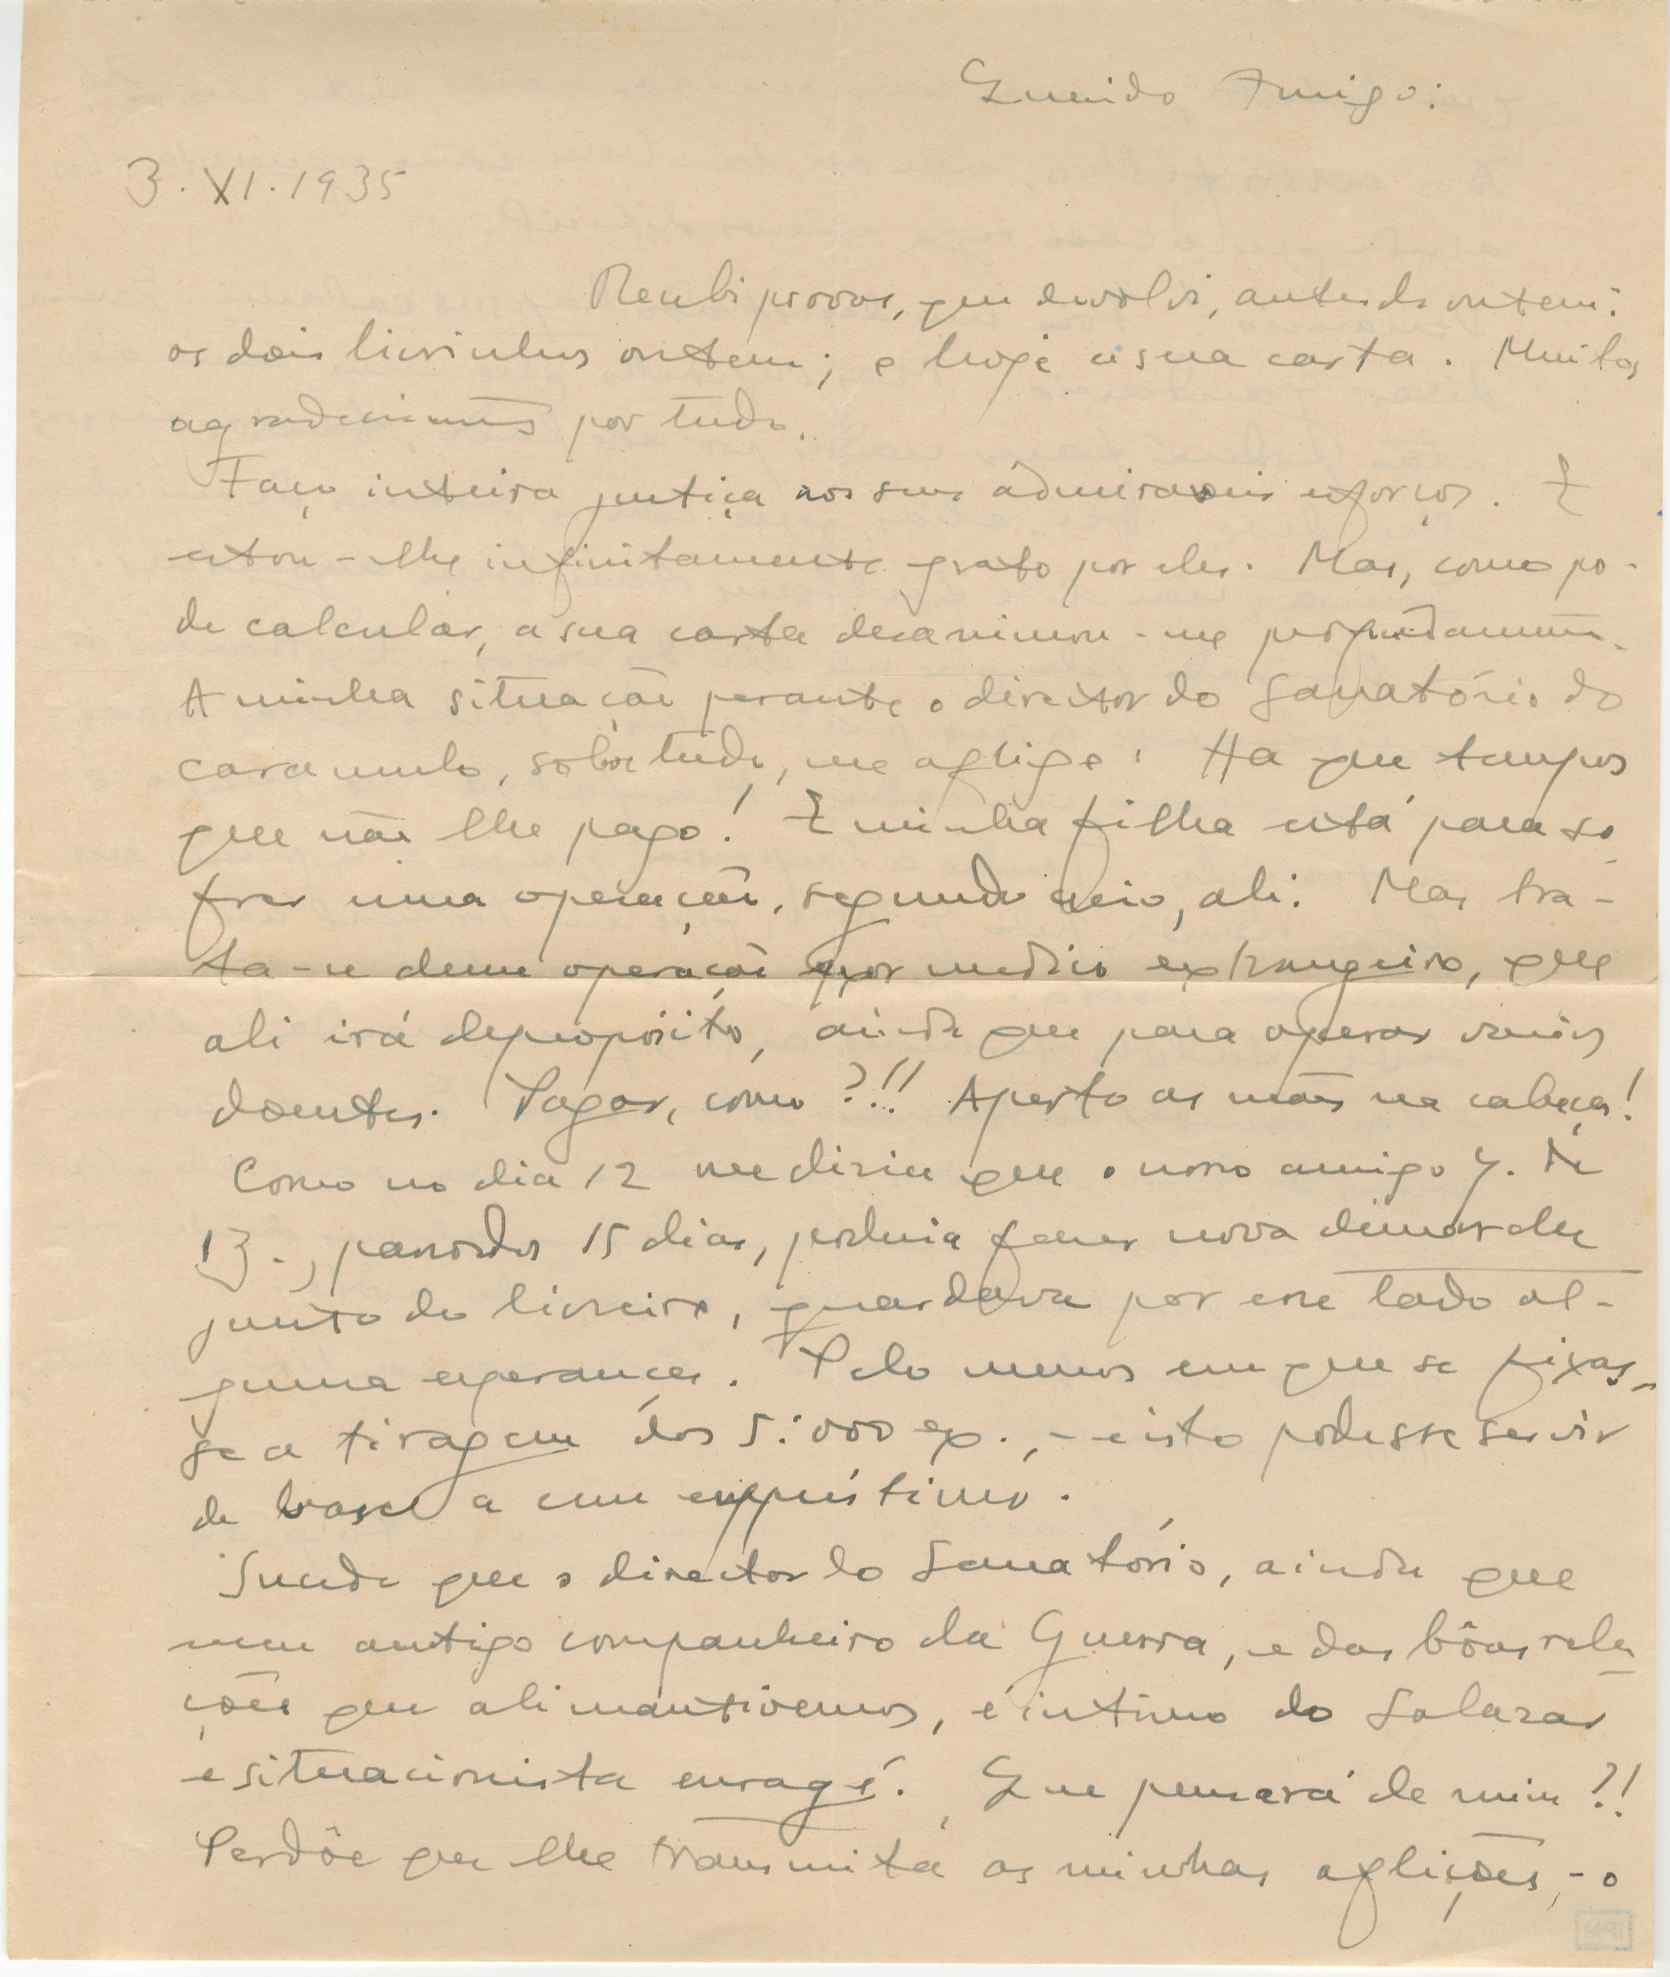 Querido Amigo:
3.XI.1935
Recebi provas, que devolvi, antes de ontem:
os dois livrinhos ontem; e hoje a sua carta. Muitos
agradecimentos por tudo.
Faço inteira justiça aos seus admiraveis esforços. E
estou-lhe infinitamente grato por eles. Mas, como po-
de calcular, a sua carta desanimou-me profundamente.
A minha situação perante o director do Sanatório do
Caramulo, sobretudo, me aflige! Ha que tempos
que não lhe pago! E minha filha está para so-
frer uma operação, segundo creio, ali. Mas tra-
ta-se duma operação por medico extrangeiro, que
ali irá de propósito, ainda que para operar varios
doentes. Pagar, como?!! Aperto as mãos na cabeça!
Como no dia 12 me dizia que o nosso amigo
13., passados 15 dias, poderia fazer nova démarche
junto do livreiro, guardava por esse lado al-
guma esperança. Pelo menos em que se fixas-
se a tiragem dos 5:000 ex., - e isto podesse servir
de base a um empréstimo.
Sucede que o director do Sanatório, ainda que
meu antigo companheiro da Guerra, e das bôas rela-
ções que ali mantivemos, é intimo do Salazar
e situacionista enragé. Que pensará de mim?!
Perdôe que lhe transmita as minhas aflições, - o